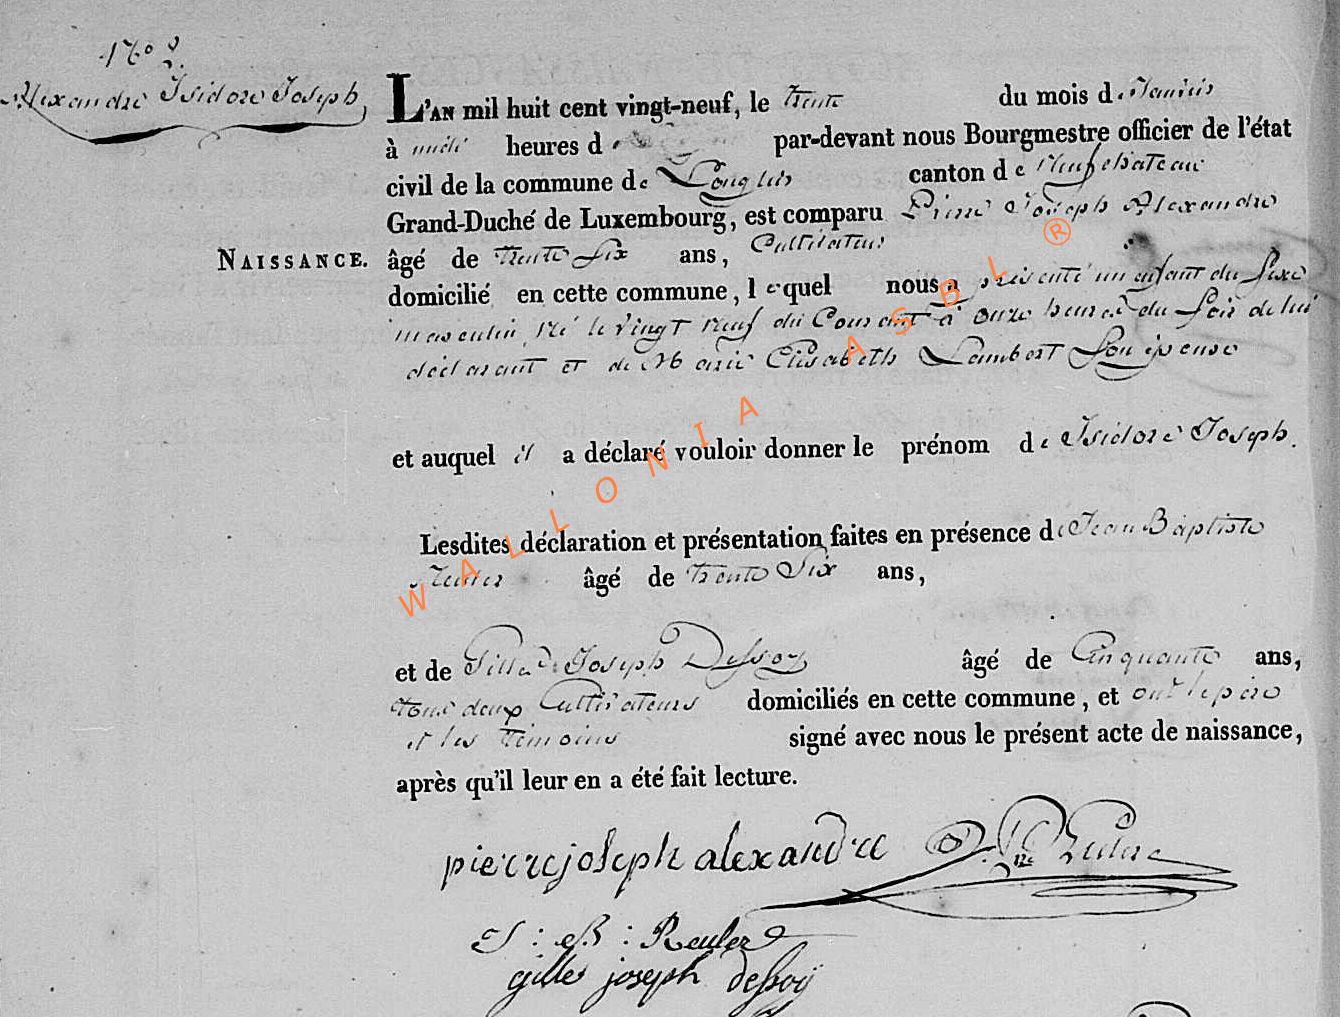 N.° 2.
Alexandre Isidore Joseph
L'AN mil huit cent vingt-neuf, le trente du mois de Janvier
à heures d par-devant nous Bourgmestre officier de l'état
civil de la commune de Longlier canton de Neufchateau
Grand-Duché de Luxembourg, est comparu Pierre Joseph Alexandre
NAISSANCE. âgé de trente Six ans, Cultivateur
domicilié en cette commune, lequel nous a présenté un enfant du Sexe
masculin, né le vingt neuf du Courant à onze heures du Soir de lui
déclarant et de Marie Elisabeth Lambert Son épouse
et auquel il a déclaré vouloir donner le prénom de Isidore Joseph.
Lesdites déclaration et présentation faites en présence de Jean Baptiste
Reuler âgé de trente Six ans,
et de Gille Joseph Dessoy âgé de Cinquante ans,
tous deux Cultivateurs domiciliés en cette commune, et ont le père
et les témoins signé avec nous le présent acte de naissance,
après qu'il leur en a été fait lecture.
pierre joseph alexandre Reuler
J : B : Reuler
gille joseph dessoy
WALLONIA ASBL ®